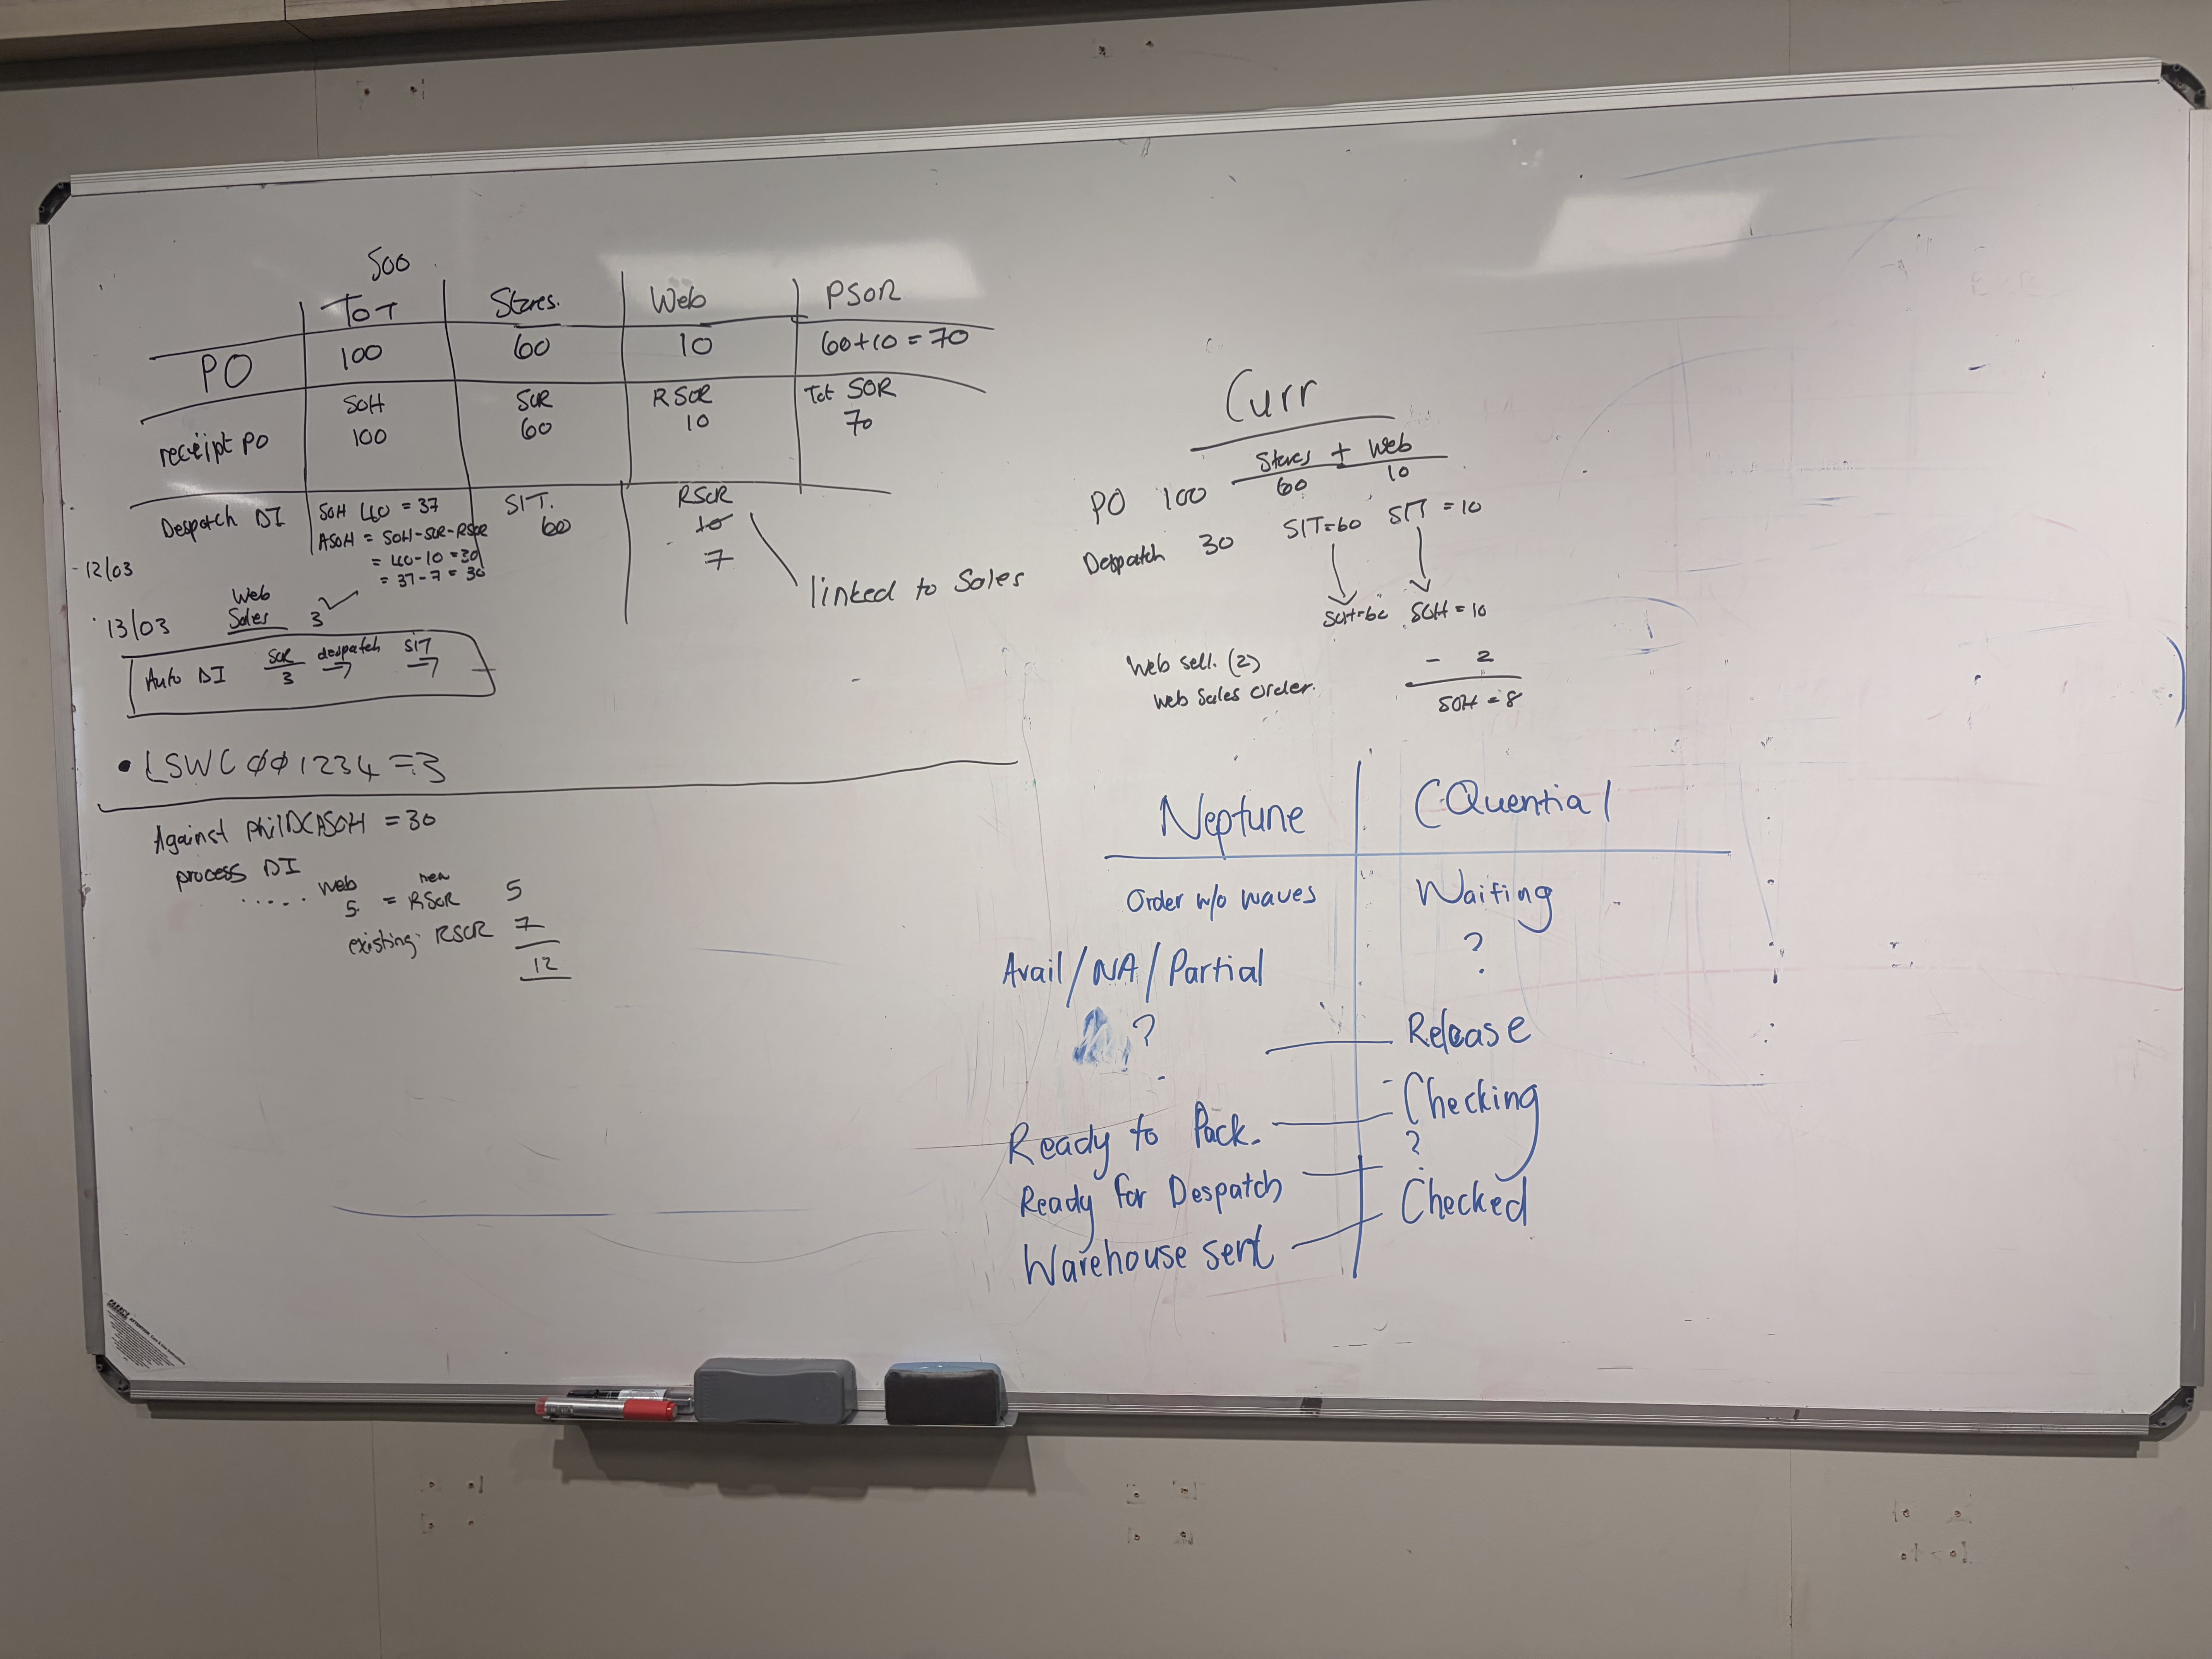 500
TOT Stores. Web PSOR
PO 100 60 10 60+10=70
SOH SOR RSOR Tot SOR
receipt PO 100 60 10 70
Despatch DI SOH 40 = 37 SIT. RSOR
ASOH = SOH-SOR-RSOR 60 10
= 40-10 = 30 7
= 37-7 = 30
linked to Sales
- 12/03
13/03 Web Sales 3 ✓
Auto DI SOR 3 despatch → SIT →
• LSWC001234 = 3
Against phil DC ASOH = 30
process DI
..... web new
5. = RSOR 5
existing RSOR 7
12
Curr
Stores + Web
PO 100 60 10
Despatch 30 SIT=60 SIT = 10
SOH=60 SOH = 10
Web sell. (2) - 2
Web Sales Order. SOH = 8
Neptune CQuential
Order w/o waves Waiting
?
Avail/NA/Partial
? Release
Ready to Pack. - Checking
?
Ready for Despatch
Checked
Warehouse sent